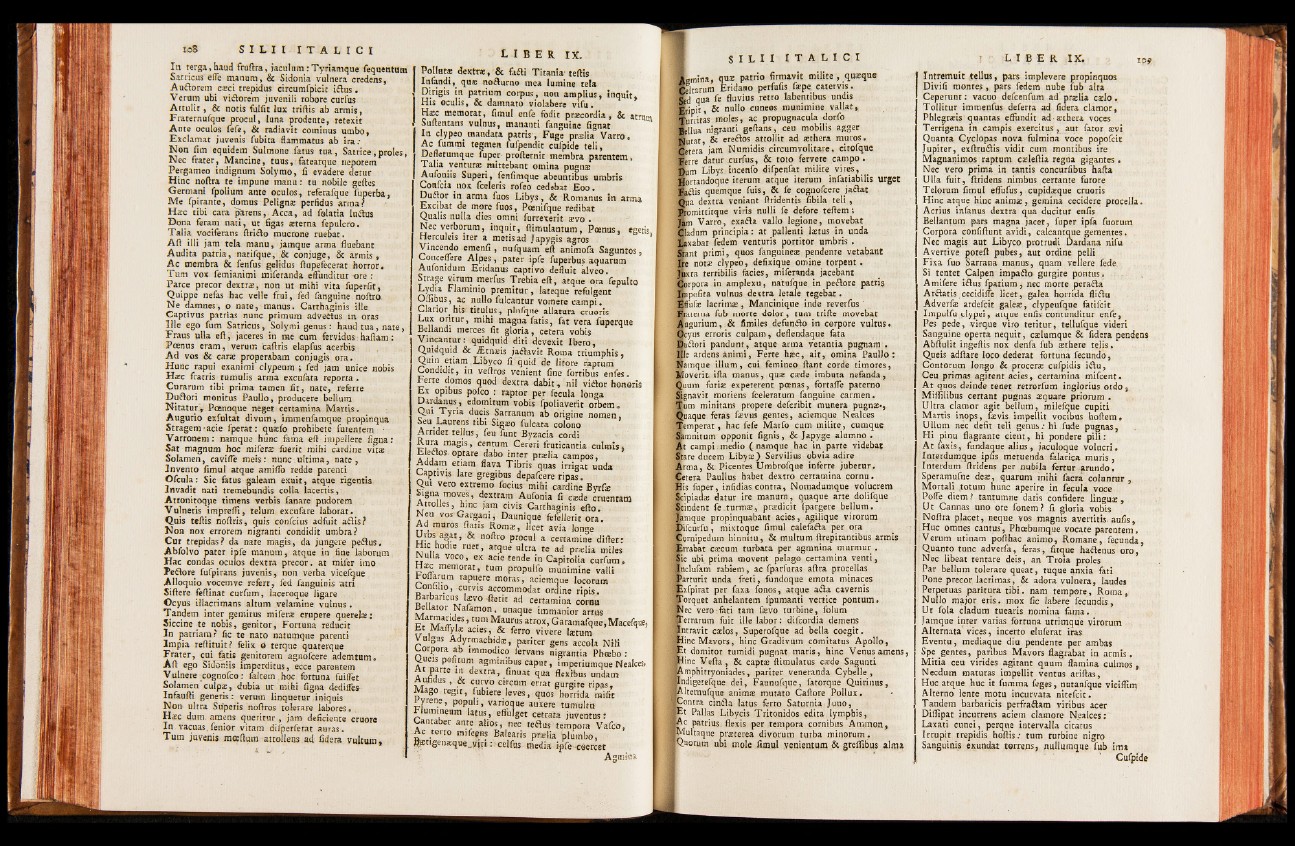 108 SILII ITALICI
In terga, haud fruſtra, jaculum: Tyriamque ſequentum
Satricus eſſe manum, & Sidonia vulnera credens,
Auctorem cæci trepidus circumſpicit ictus.
Verum ubi victorem juvenili robore curſus
Attulit, & notis fulſit lux triſtis ab armis,
Fraternuſque procul, luna prodente, retexit
Ante oculos ſeſe, & radiavit cominus umbo,
Exclamat juvenis ſubita flammatus ab ira:
Non ſim equidem Sulmone ſatus tua, Satrice, proles,
Nec frater, Mancine, tuus, fatearque neporem
Pergameo indignum Solymo, ſi evadere detur
Hinc noſtra te impune manu: tu nobile geſtes
Germani ſpolium ante oculos, referaſque ſuperba,
Me ſpirante, domus Pelignæ perfidus arma?
Hæc tibi cara parens, Acca, ad ſolatia luctus
Dona feram nati, ut figas æterna ſepulcro.
Talia vociferans ſtricto mucrone ruebat.
Aſt illi jam tela manu, jamque arma fluebant
Audita patria, natiſque, & conjuge, & armis,
Ac membra & ſenſus gelidus ſtupefecerat horror.
Tum vox ſemianimi miſeranda effunditur ore:
Parce precor dextræ, non ut mihi vita ſuperſit,
Quippe nefas hac velle frui, ſed ſanguine noſtro
Ne damnes, o nate, manus. Carthaginis ille
Captivus patrias nunc primum advectus in oras
Ille ego ſum Satricus, Solymi genus: haud tua, nate,
Fraus ulla eſt, jaceres in me cum fervidus haſtam:
Pœnus eram, verum caſtris elapſus acerbis
Ad vos & caræ properabam conjugis ora.
Hunc rapui exanimi clypeum; ſed jam unice nobis
Hæc fratris tumulis arma excuſata reporta.
Curarum tibi prima tamen ſit, nate, referre
Ductori monitus Paullo, producere bellum
Nitatur, Pœnoque neget certamina Martis.
Augurio exſultat divum, immenſamque propinqua
Stragem acie ſperat: quæſo prohibete furentem
Varronem: namque hunc fama eſt impellere ſigna:
Sat magnum hoc miſeræ fuerit mihi cardine vitæ
Solamen, caviſſe meis: nunc ultima, nate,
Invento ſimul atque amiſſo redde parenti
Oſcula: Sic fatus galeam exuit, atque rigentis
Invadit nati tremebundis colla lacertis,
Attonitoque timens verbis ſanare pudorem
Vulneris impreſſi, telum excuſare laborat.
Quis teſtis noſtris, quis conſcius adfuit actis?
Non nox errorem nigranti condidit umbra?
Cur trepidas? da nate magis, da jungere pectus.
Abſolvo pater ipſe manum, atque in fine laborum
Hac condas oculos dextra precor. at miſer imo
Pectore ſuſpirans juvenis, non verba viceſque
Alloquio vocemve refert, ſed ſanguinis atri
Siſtere feſtinat curſum, laceroque ligare
Ocyus illacrimans altum velamine vulnus.
Tandem inter gemitus miſeræ erupere querelæ:
Siccine te nobis, genitor, Fortuna reducit
In patriam? ſic te nato natumque parenti
Impia reſtituit? felix o terque quaterque
Frater, cui fatis genitorem agnoſcere ademtum.
Aſt ego Sidoniis imperditus, ecce parentem
Vulnere cognoſco: ſaltem hoc fortuna fuiſſet
Solamen culpæ, dubia ut mihi ſigna dediſſes
Infauſti generis: verum linquetur iniquis
Non ultra Superis noſtros tolerare labores.
Hæc dum amens queritur, jam deficiente cruore
In vacuas ſenior vitam diſperſerat auras.
Tum juvenis mœſtum attollens ad ſidera vultum,
LIBER IX.
Pollutæ dextræ, & facti Titania teſtis
Infandi, quæ nocturno mea lumine tela
Dirigis in patrium corpus, non amplius, inquit,
His oculis, & damnato violabere viſu.
Hæc memorat, ſimul enſe fodit præcordia, & atrum
Suſtentans vulnus, mananti ſanguine ſignat
In clypeo mandata patris, Fuge prælia Varro.
Ac ſummi tegmen ſuſpendit cuſpide teli,
Defletumque ſuper proſternit membra parentem,
Talia venturæ mittebant omina pugnæ
Auſoniis Superi, ſenſimque abeuntibus umbris
Conſcia nox ſceleris roſeo cedebat Eoo.
Ductor in arma ſuos Libys, & Romanus in arma
Excibat de more ſuos, Pœniſque redibat
Qualis nulla dies omni ſurrexerit ævo.
Nec verborum, inquit, ſtimulantum, Pœnus, egetis
Herculeis iter a metis ad Japygis agros
Vincendo emenſi, nuſquam eſt animoſa Saguntos,
Conceſſere Alpes, pater ipſe ſuperbus aquarum
Auſonidum Eridanus captivo defluit alveo.
Strage virum merſus Trebia eſt, atque ora ſepulto
Lydia Flaminio premitur, lateque refulgent
Oſſibus, ac nullo ſulcantur vomere campi.
Clarior his titulus, pluſque allatura cruoris
Lux oritur, mihi magna ſatis, ſat vera ſuperque
Bellandi merces ſit gloria, cetera vobis
Vincantur: quidquid diti devexit Ibero,
Quidquid & Ætnæis jactavit Roma triumphis,
Quin etiam Libyco ſi quid de litore raptum
Condidit, in veſtros venient ſine ſortibus enſes.
Ferte domos quod dextra dabit, nil victor honoris
Ex opibus poſco: raptor per ſecula longa
Dardanus, edomitum vobis ſpoliaverit orbem,
Qui Tyria ducis Sarranum ab origine nomen,
Seu Laurens tibi Sigæo ſulcata colono
Arridet tellus, ſeu ſunt Byzacia cordi
Rura magis, centum Cereri fruticantia culmis,
Electos optare dabo inter prælia campos,
Addam etiam flava Tibris quas irrigat unda
Captivis late gregibus depaſcere ripas.
Qui vero extremo ſocius mihi cardine Byrſæ
Signa moves, dextram Auſonia ſi cæde cruentam
Attolles, hinc jam civis Carthaginis eſto.
Neu vos Gargani, Daunique fefellerit ora.
Ad muros ſtatis Romæ, licet avia longe
Urbs agat, & noſtro procul a certamine diſtet:
Hic hodie ruet, atque ultra te ad prælia miles
Nulla voco, ex acie tende in Capitolia curſum.
Hæc memorat, tum propulſo munimine valli
Foſſarum rapuere moras, aciemque locorum
Conſilio, curvis accommodat ordine ripis.
Barbaricus lævo ſtetit ad certamina cornu
Bellator Naſamon, unaque immanior artus
Marmarides, tum Maurus atrox, Garamaſque, Maceſque,
Et Maſſylæ acies, & ferro vivere lætum
Vulgus Adyrmachidæ, pariter gens accola Nili
Corpora ab immodico ſervans nigrantia Phœbo:
Queis poſitum agminibus caput, imperiumque Nealces.
At parte in dextra, ſinuat qua flexibus undam
Aufidus, & curvo circum errat gurgite ripas,
Mago regit, ſubiere leves, quos horrida miſit
Pyrene, populi, varioque auxere tumultu
Flumineum latus, effulget cetrata juventus:
Cantaber ante alios, nec tectus tempora Vaſco,
Ac torto miſcens Balearis prælia plumbo,
Bætigenæque viri: celſus media ipſe coercet
Agmina
SILII ITALICI
Agmina, quæ patrio firmavit milite, quæque
Celtarum Eridano perfuſis ſæpe catervis.
Sed qua ſe fluvius retro labentibus undis
Eripit, & nullo cuneos munimine vallat,
Turritas moles, ac propugnacula dorſo
Bellua nigranti geſtans, ceu mobilis agger
Nutat, & erectos attollit ad æthera muros.
Cetera jam Numidis circumvolitare, citoſque
Ferre datur curſus, & toto fervere campo.
Dum Libys incenſo diſpenſat milite vires,
Hortandoque iterum atque iterum inſatiabilis urget
Factis quemque ſuis, & ſe cognoſcere jactat
Qua dextra veniant ſtridentis ſibila teli,
Promittitque viris nulli ſe defore teſtem;
Jam Varro, exacta vallo legione, movebat
Cladum principia: at pallenti lætus in unda
Laxabat ſedem venturis portitor umbris.
Stant primi, quos ſanguineæ pendente vetabant
Ire notæ clypeo, defixique omine torpent.
Juxta terribilis facies, miſeranda jacebant
Corpora in amplexu, natuſque in pectore patris
Impoſita vulnus dextra letale tegebat.
Effuſæ lacrimæ, Mancinique inde reverſus
Fraterna ſub morte dolor, tum triſte movebat
Augurium, & ſimiles defuncto in corpore vultus.
Ocyus erroris culpam, deflendaque fata
Ductori pandunt, atque arma vetantia pugnam.
Ille ardens animi, Ferte hæc, ait, omina Paullo:
Namque illum, cui femineo ſtant corde timores,
Moverit iſta manus, quæ cæde imbuta nefanda,
Quum furiæ expeterent pœnas, fortaſſe paterno
Signavit moriens ſceleratum ſanguine carmen.
Tum minitans propere deſcribit munera pugnæ,
Quaque feras ſævus gentes, aciemque Nealces
Temperat, hac ſeſe Marſo cum milite, cumque
Samnitum opponit ſignis, & Japyge alumno.
At campi medio (namque hac in parte videbat
Stare ducem Libyæ) Servilius obvia adire
Arma, & Picentes Umbroſque inferre jubetur.
Cetera Paullus habet dextro certamina cornu.
His ſuper, inſidias contra, Nomadumque volucrem
Scipiadæ datur ire manum, quaque arte doliſque
Scindent ſe turmæ, prædicit ſpargere bellum.
Jamque propinquabant acies, agilique virorum
Diſcurſu, mixtoque ſimul calefacta per ora
Cornipedum hinnitu, & multum ſtrepitantibus armis
Errabat cæcum turbata per agmnina murmur.
Sic ubi prima movent pelago certamina venti,
Incluſam rabiem, ac ſparſuras aſtra procellas
Parturit unda freti, fundoque emota minaces
Exſpirat per ſaxa ſonos, atque acta cavernis
Torquet anhelantem ſpumanti vertice pontum.
Nec vero fati tam ſævo turbine, ſolum
Terrarum fuit ille labor: diſcordia demens
Intravit cælos, Superoſque ad bella coegit.
Hinc Mavors, hinc Gradivum comitatus Apollo,
Et domitor tumidi pugnat maris, hinc Venus amens,
Hinc Veſta, & captæ ſtimulatus cæde Sagunti
Amphitryoniades, pariter veneranda Cybelle,
Indigeteſque dei, Faunuſque, ſatorque Quirinus,
Alternuſque animæ mutato Caſtore Pollux.
Contra cincta latus ferro Saturnia Juno,
Et Pallas Libycis Tritonidos edita lymphis,
Ac patrius flexis per tempora cornibus Ammon,
Multaque præterea divorum turba minorum.
Quorum ubi mole ſimul venientum & greſſibus alma
LIBER IX. 109
Intremuit tellus, pars implevere propinquos
Diviſi montes, pars ſedem nube ſub alta
Ceperunt: vacuo deſcenſum ad prælia cælo.
Tollitur immenſus deſerta ad ſidera clamor,
Phlegræis quantas effundit ad æthera voces
Terrigena in campis exercitus, aut ſator ævi
Quanta Cyclopas nova fulmina voce popoſcit
Jupiter, exſtructis vidit cum montibus ire
Magnanimos raptum cæleſtia regna gigantes.
Nec vero prima in tantis concurſibus haſta
Ulla fuit, ſtridens nimbus certante furore
Telorum ſimul effuſus, cupidæque cruoris
Hinc atque hinc animæ, gemina cecidere procella.
Acrius inſanus dextra qua ducitur enſis
Bellantum pars magna jacet, ſuper ipſa ſuorum
Corpora conſiſtunt avidi, calcantque gementes.
Nec magis aut Libyco protrudi Dardana niſu
Avertive poteſt pubes, aut ordine pelli
Fixa ſuo Sarrana manus, quam vellere ſede
Si tentet Calpen impacto gurgite pontus,
Amiſere ictus ſpatium, nec morte peracta
Arctatis cecidiſſe licet, galea horrida flictu
Adverſæ ardeſcit galeæ, clypeuſque fatiſcit
Impulſu clypei, atque enſis contunditur enſe,
Pes pede, virque viro teritur, telluſque videri
Sanguine operta nequit, cælumque & ſidera pendens
Abſtulit ingeſtis nox denſa ſub æthere telis.
Queis adſtare loco dederat fortuna ſecundo,
Contorum longo & proceræ cuſpidis ictu,
Ceu primas agitent acies, certamina miſcent.
At quos deinde tenet retrorſum inglorius ordo,
Miſſilibus certant pugnas æquare priorum.
Ultra clamor agit bellum, mileſque cupiti
Martis inops, ſævis impellit vocibus hoſtem.
Ullum nec deſit teli genus: hi ſude pugnas,
Hi pinu flagrante cient, hi pondere pili:
At ſaxis, fundaque alius, jaculoque volucri.
Interdumque ipſis metuenda falarica muris,
Interdum ſtridens per nubila fertur arundo.
Speramuſne deæ, quarum mihi ſacra colantur,
Mortali totum hunc aperire in ſecula voce
Poſſe diem? tantumne datis confidere linguæ,
Ut Cannas uno ore ſonem? ſi gloria vobis
Noſtra placet, neque vos magnis avertitis auſis,
Huc omnes cantus, Phœbumque vocate parentem.
Verum utinam poſthac animo, Romane, ſecunda,
Quanto tunc adverſa, feras, ſitque hactenus oro,
Nec libeat tentare deis, an Troia proles
Par bellum tolerare queat, tuque anxia fati
Pone precor lacrimas, & adora vulnera, laudes
Perpetuas paritura tibi. nam tempore, Roma,
Nullo major eris. mox ſic labere ſecundis,
Ut ſola cladum tuearis nomina fama.
Jamque inter varias fortuna utrimque virorum
Alternata vices, incerto eluſerat iras
Eventu, mediaque diu pendente per ambas
Spe gentes, paribus Mavors flagrabat in armis.
Mitia ceu virides agitant quum flamina culmos,
Necdum maturas impellit ventus ariſtas,
Huc atque huc it ſumma ſeges, nutanſque viciſſim
Alterno lente motu incurvata niteſcit.
Tandem barbaricis perfractam viribus acer
Diſſipat incurrens aciem clamore Nealces:
Laxati cunei, perque intervalla citatus
Irrupit trepidis hoſtis: tum turbine nigro
Sanguinis exundat torrens, nullumque ſub ima
Cuſpide